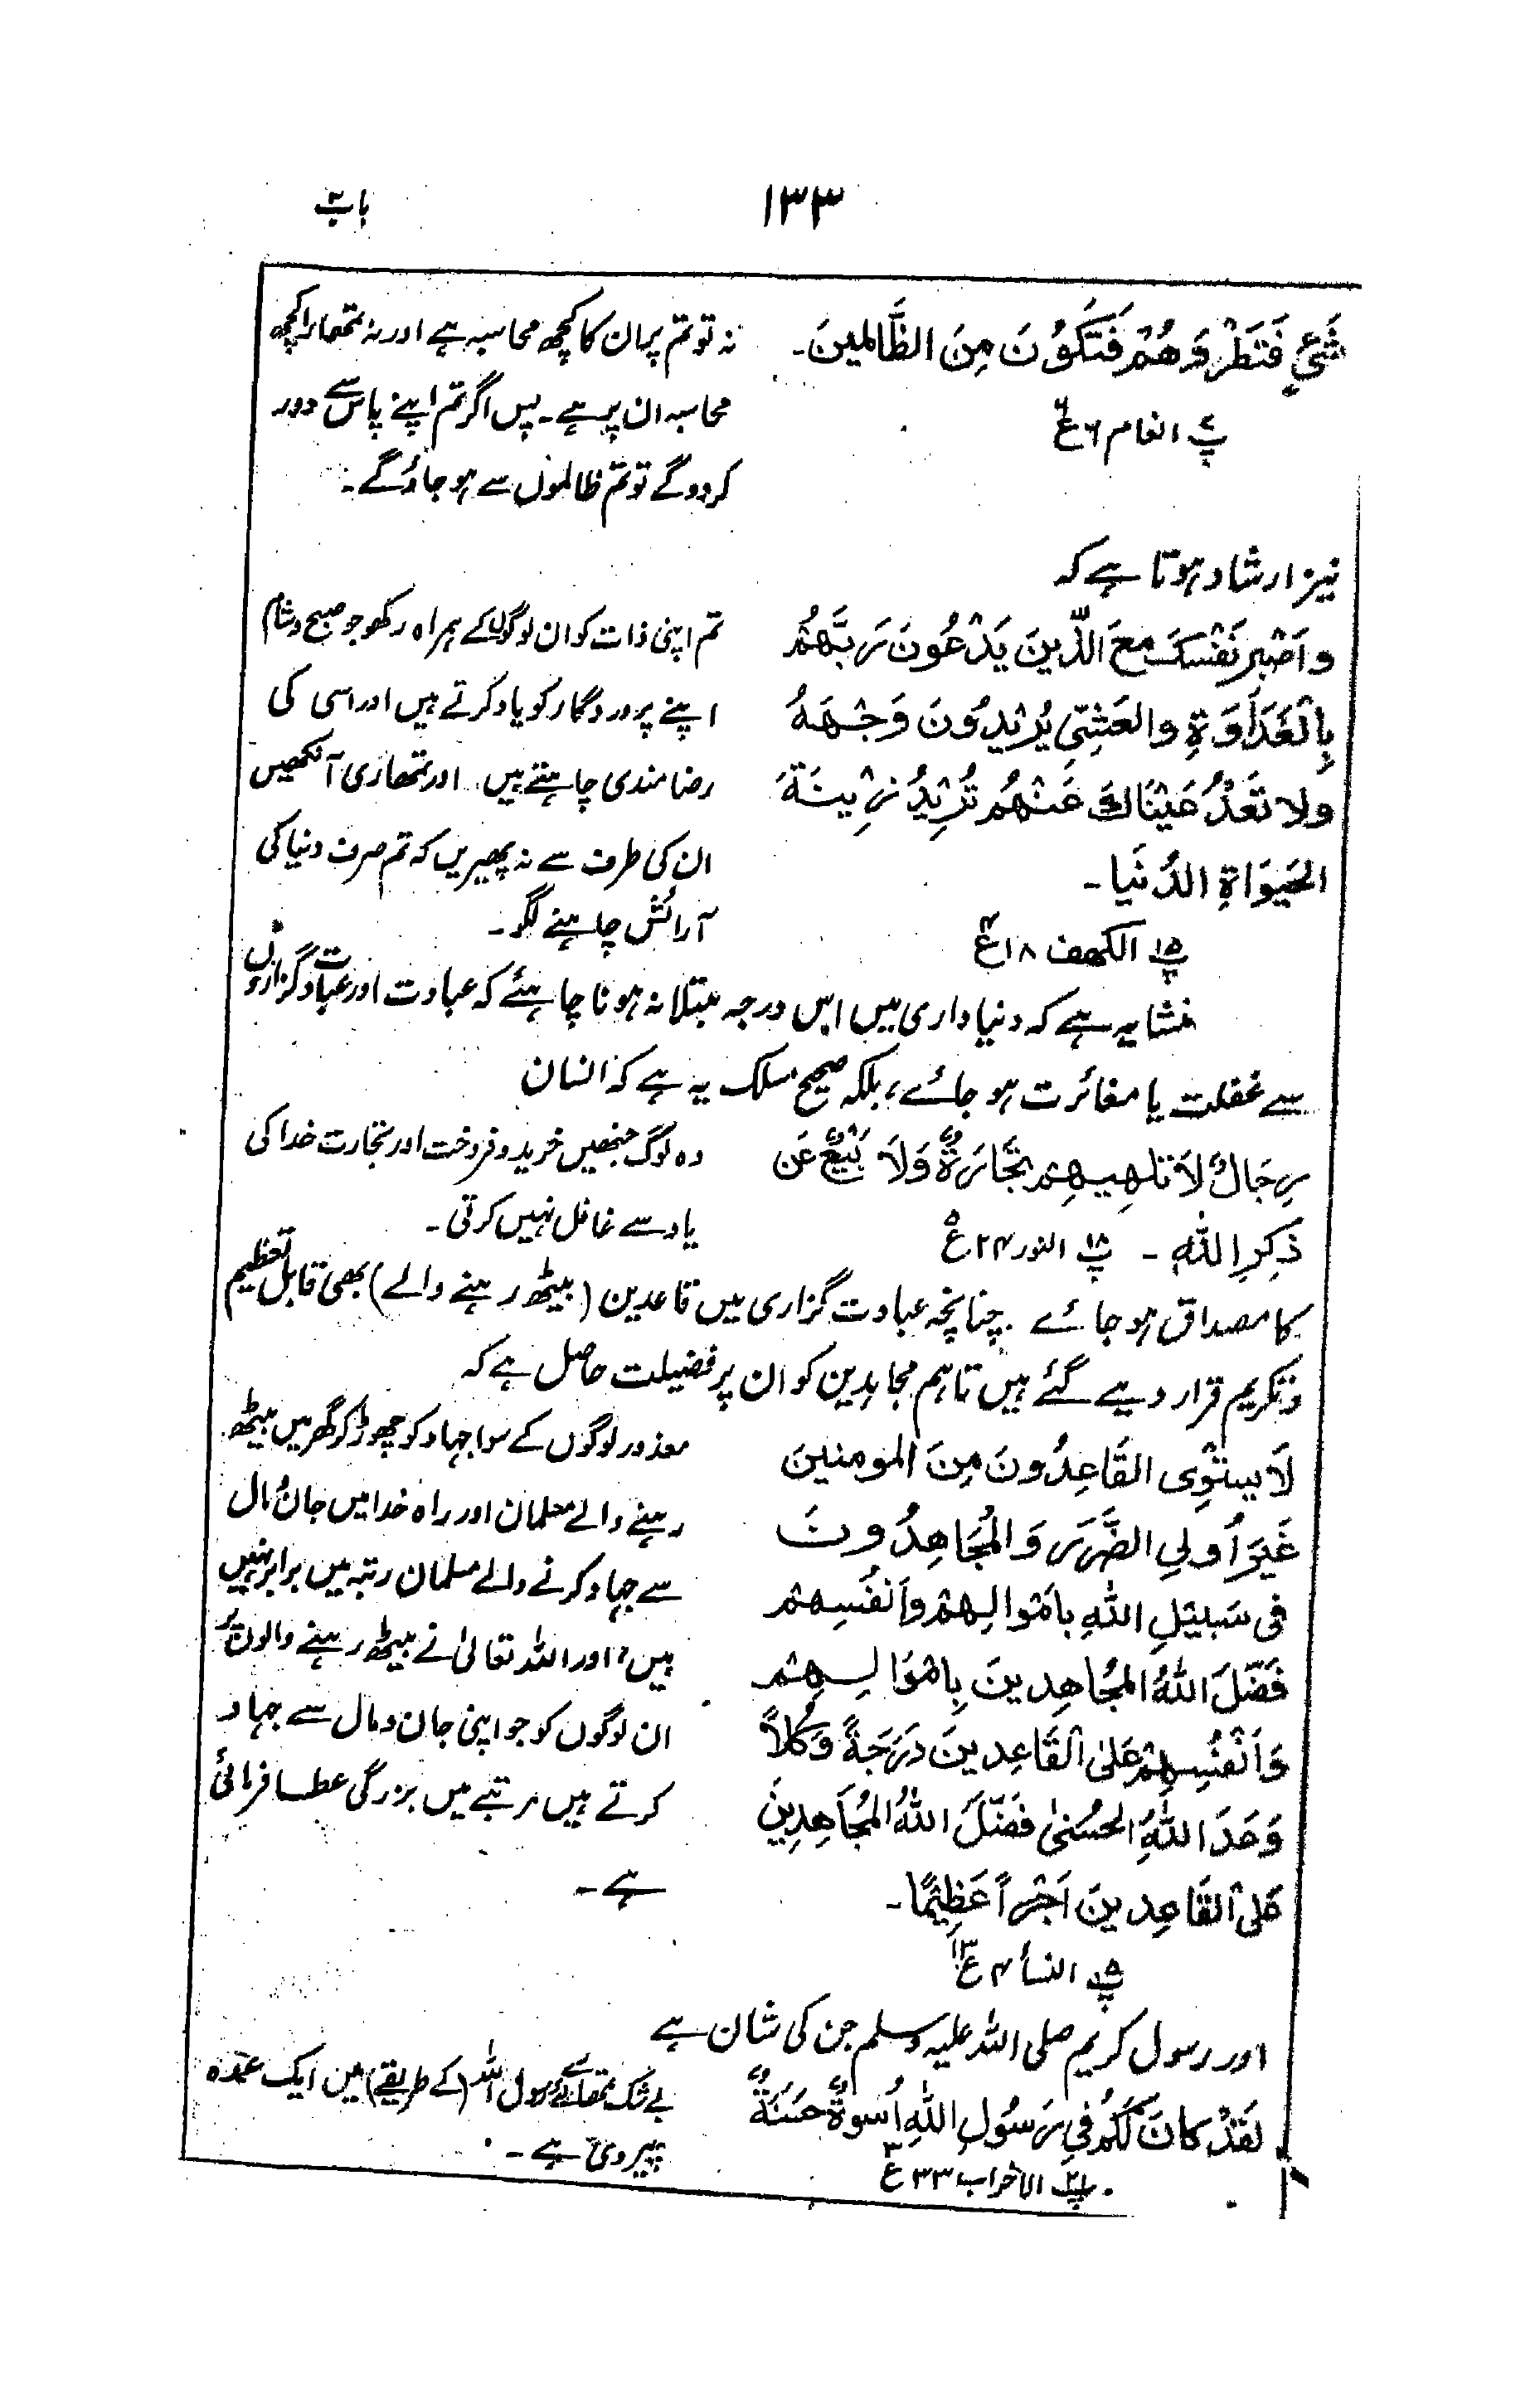 ۱۳۳
باب۳
شَیْءٍ فَتَطْرُدَهُمْ فَتَكُوْنَ مِنَ الظَّالِمِيْنَ۔
پ۷ انعام ۶ ع
نہ تو تم پر ان کا کچھ محاسبہ ہے اور نہ تمھارا کچھ
محاسبہ ان پر ہے۔ پس اگر تم اپنے پاس سے دور
کر دو گے تو تم ظالموں سے ہو جاؤ گے۔
نیز ارشاد ہوتا ہے کہ
واَصْبِر نَفْسَكَ مَعَ الَّذِينَ يَدْعُونَ رَبَّهُمْ
بِالْغَدَاوَةِ والعَشِیِّ يُرِيْدُونَ وَجْهَهُ
ولا تَعْدُ عَيْنَاكَ عَنْهُمْ تُرِيْدُ زِيْنَةَ
الحَيَوَاةِ الدُّنْيَا۔
پ۱۵ الکہف ۱۸ ع۴
تم اپنی ذات کو ان لوگوں کے ہمراہ رکھو جو صبح و شام
اپنے پروردگار کو یاد کرتے ہیں اور اسی کی
رضامندی چاہتے ہیں۔ اور تمھاری آنکھیں
ان کی طرف سے نہ پھیریں کہ تم صرف دنیا کی
آرائش چاہنے لگو۔
منشا یہ ہے کہ دنیا داری میں اس درجہ مبتلا نہ ہونا چاہئے کہ عبادت اور عبادت گزاروں
سے غفلت یا مغائرت ہو جائے، بلکہ صحیح مسلک یہ ہے کہ انسان
رِجَالٌ لاَ تلهِيهِمْ تِجَارَةٌ وَلاَ بَيْعٌ عَن
ذَكِرِ اللّٰهِ ۔ پ۱۸ النور ۲۴ ع۵
وہ لوگ جنھیں خرید و فروخت اور تجارت خدا کی
یاد سے غافل نہیں کرتی۔
کا مصداق ہو جائے۔ چنانچہ عبادت گزاری میں قاعدین (بیٹھ رہنے والے) بھی قابل تعظیم
و تکریم قرار دیے گئے ہیں تاہم مجاہدین کو ان پر فضیلت حاصل ہے کہ
لاَ يستَوِى القَاعِدُونَ مِنَ المومنينَ
غَيرَ اُولِي الضَّرَرِ وَالمُجَاهِدُونَ
فى سَبِيْلِ اللّٰهِ بامْوالِهِمْ وَاَنفُسِهِمْ
فَضَّلَ اللّٰهُ المجُاهِدينَ بِامْوَالِهِمْ
وَاَنْفُسِهِمْ عَلىٰ القَاعِدينَ دَرَجَةً وَكُلاًّ
وَعَدَ اللّٰهُ الحُسْنىٰ فَضَّلَ اللّٰهُ المجُاهِدِينَ
عَلىٰ القَاعِدينَ اَجْراً عَظِيْمًا۔
پ۵ النسأ ۴ ع۱۳
معذور لوگوں کے سوا جہاد کو چھوڑ کر گھر میں بیٹھ
رہنے والے مسلمان اور راہ خدا میں جان و مال
سے جہاد کرنے والے مسلمان رتبہ میں برابر نہیں
ہیں، اور اللہ تعالیٰ نے بیٹھ رہنے والوں پر
ان لوگوں کو جو اپنی جان و مال سے جہاد
کرتے ہیں مرتبے میں بزرگی عطا فرمائی
ہے۔
اور رسول کریم صلی اللہ علیہ وسلم جن کی شان ہے
لَقَدْ كَانَ لَكُمْ فِي رَسُولِ اللّٰهِ اُسْوَةٌ حَسَنَةٌ
پ۲۱ الاحزاب ۳۳ ع۳
بے شک تمھارے لئے رسول اللہ (کے طریقے) میں ایک عمدہ
پیروی ہے۔